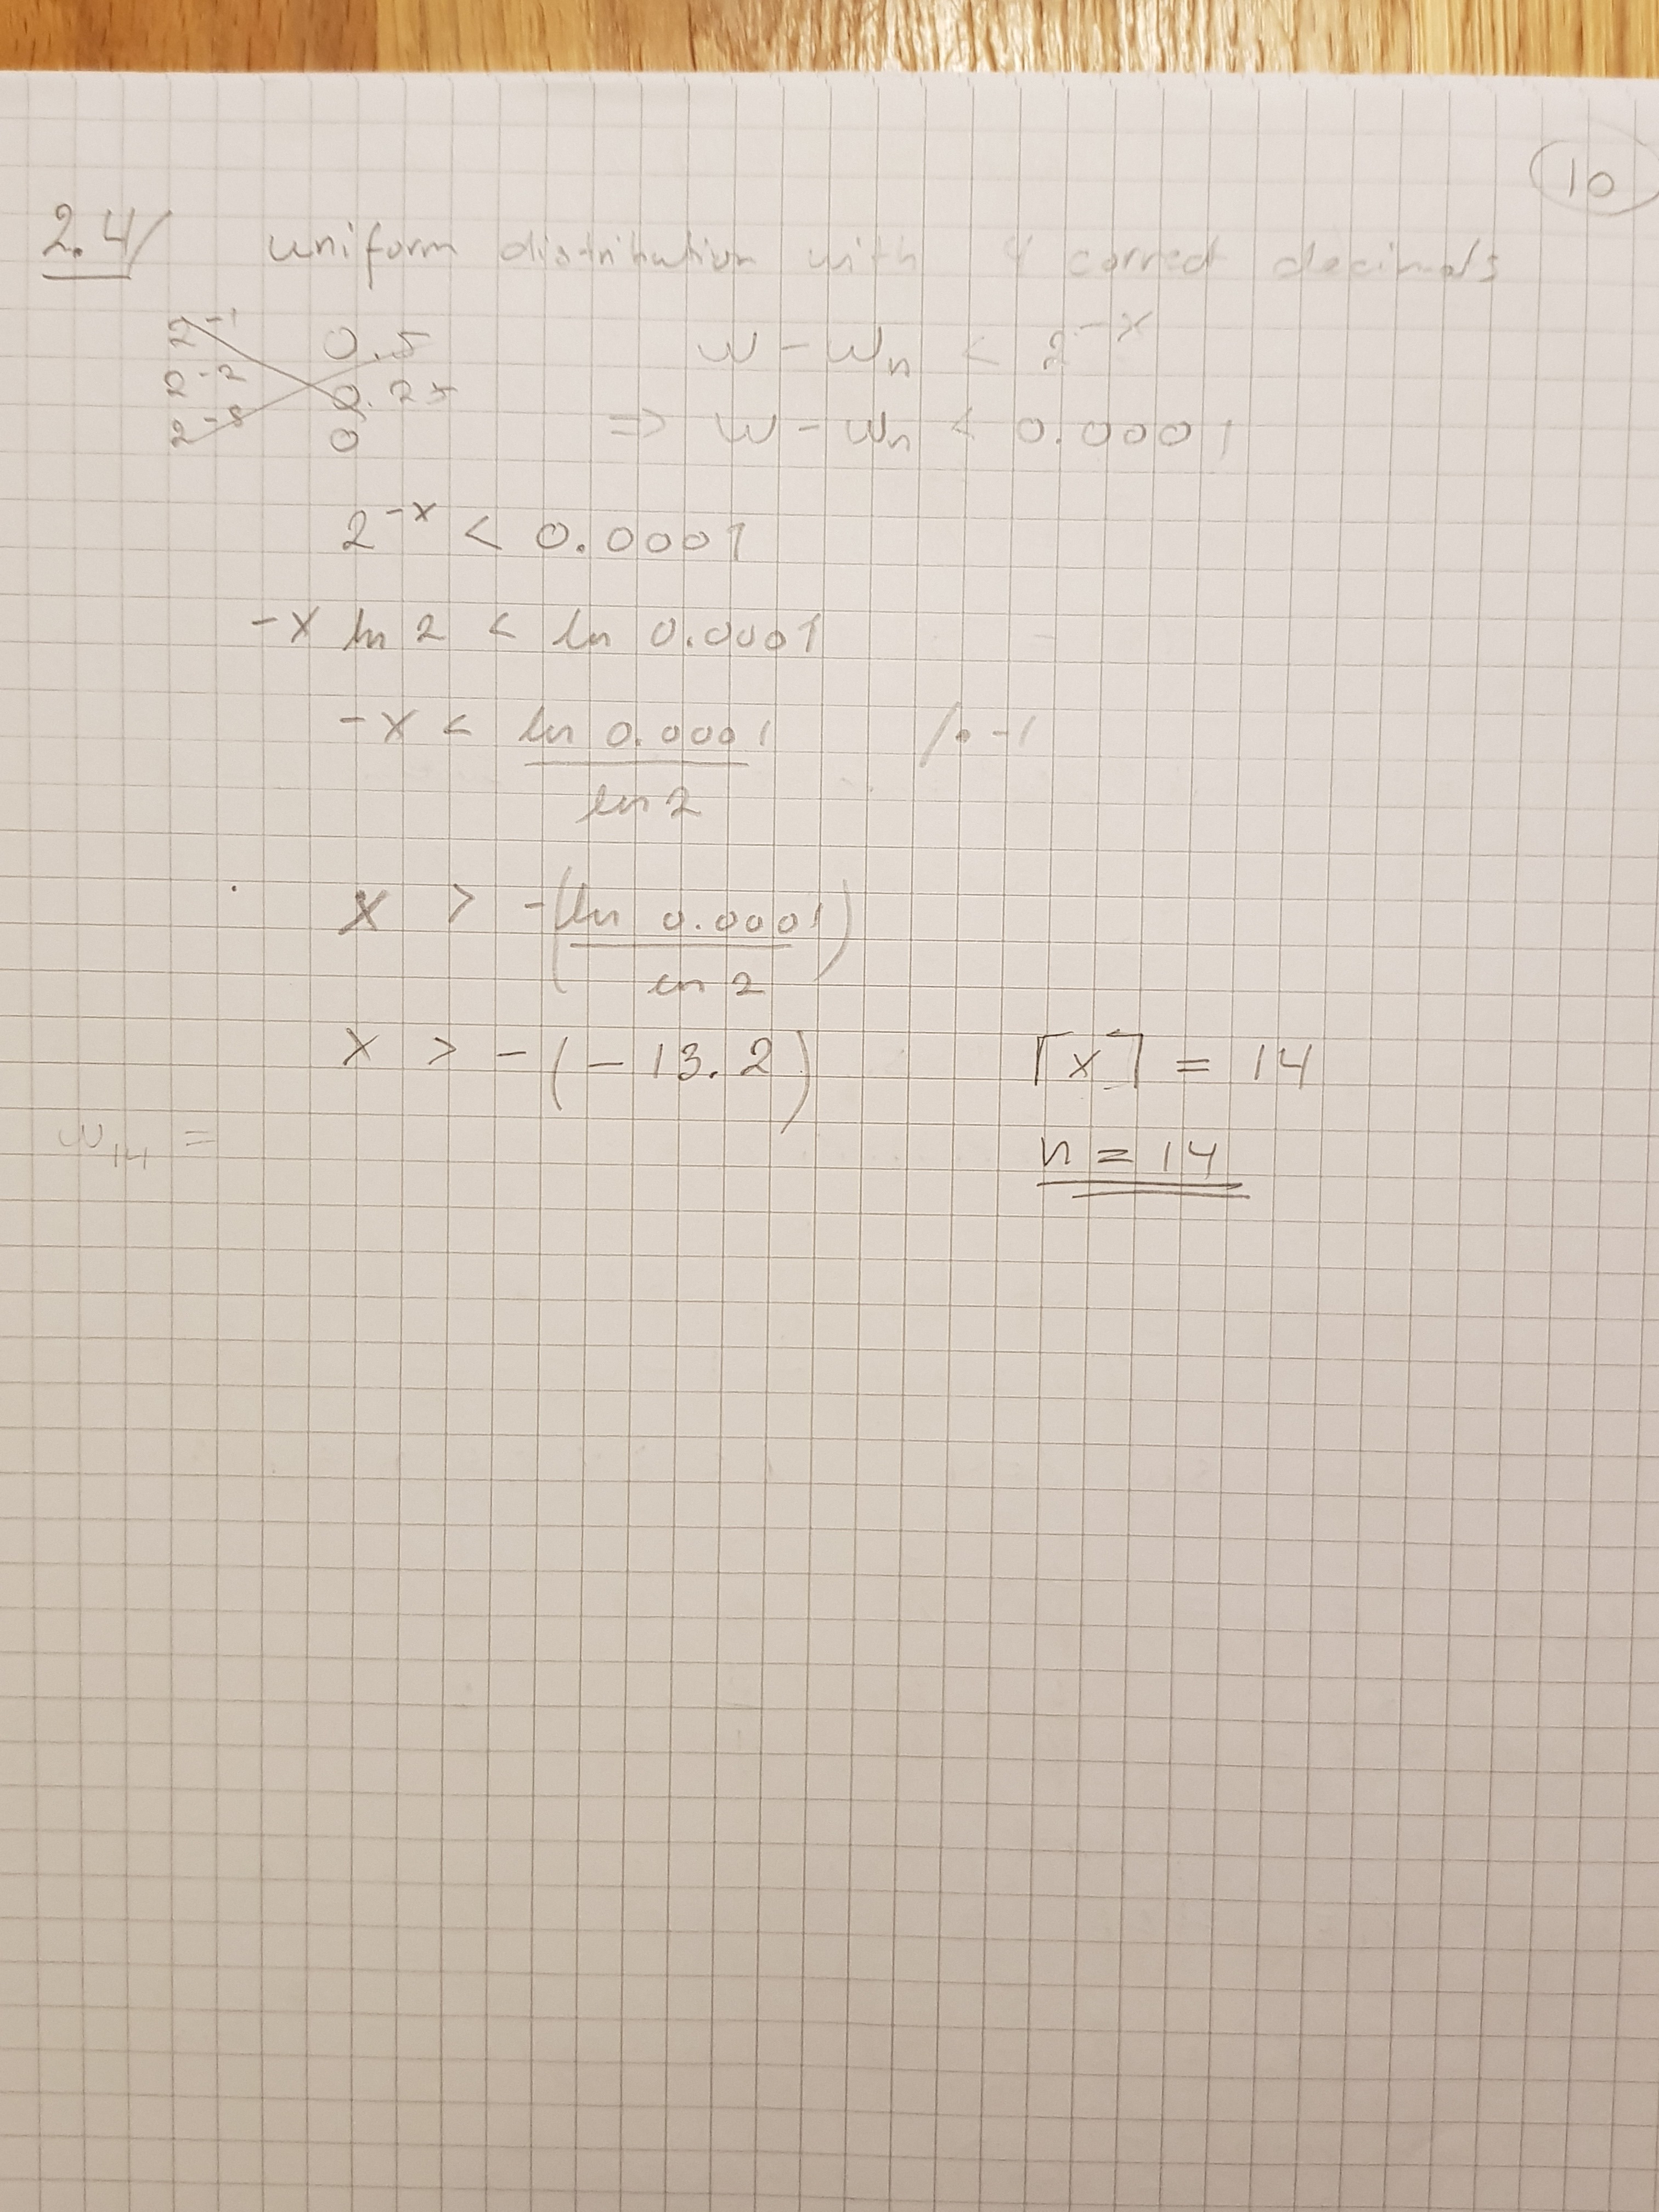 10
2.4/ uniform distribution with 4 correct decimals
2^-1 0.5 w - w_n < 2^-x
2^-2 0.25
2^-3 0 => w - w_n < 0.0001
2^-x < 0.0001
-x ln 2 < ln 0.0001
-x < ln 0.0001 /•-1
ln 2
x > -(ln 0.0001)
ln 2
x > -(-13.2) ⌈x⌉ = 14
w_14 = n = 14